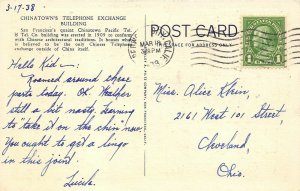 3-17-38
CHINATOWN'S TELEPHONE EXCHANGE
BUILDING
San Francisco's quaint Chinatown Pacific Tel.
& Tel. Co. building was erected in 1909 to conform
with Chinese architectural traditions. It houses what
is believed to be the only Chinese Telephone
exchange outside of China
Hello Kid—
Roamed around these
parts today. Ok. Weather
still a bit nasty, learning
to "take it on the chin" now.
You ought to get a lingo
in this joint.
Lucile.
POST CARD
MAR
PM
1
Miss. Alice Klein,
2161 West 101 Street,
Cleveland,
Ohio.